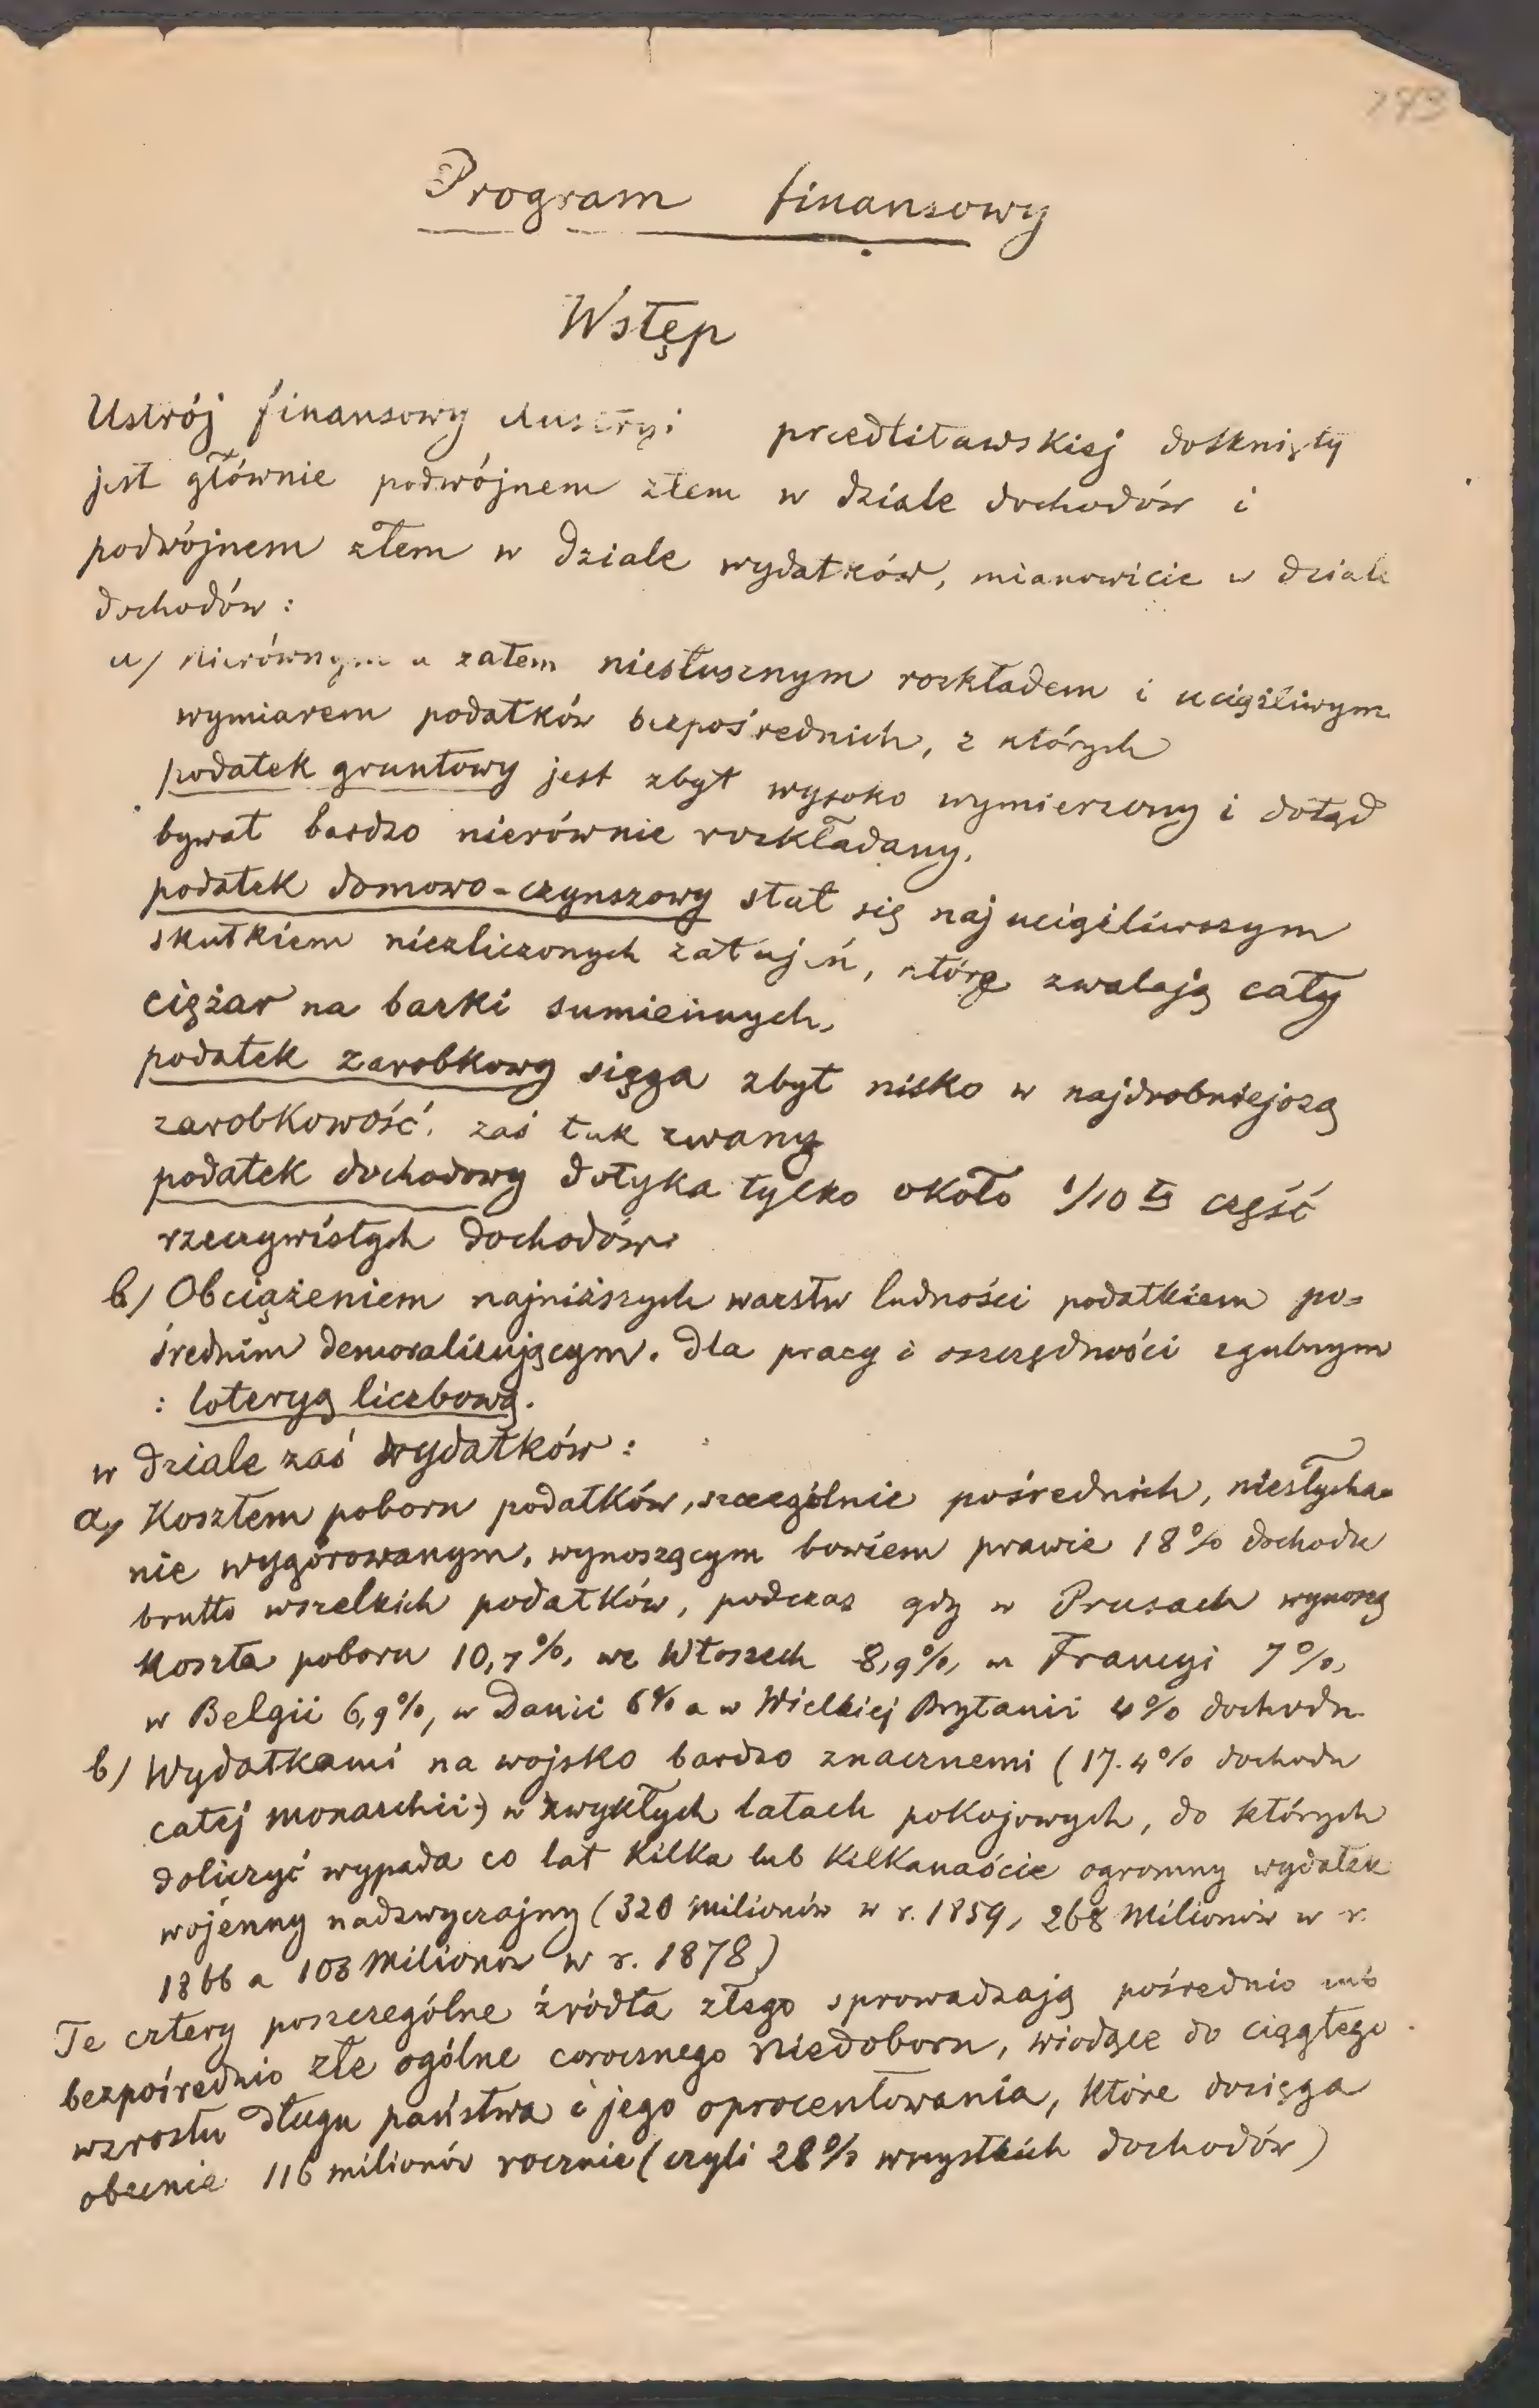 193
Program finansowy
Wstęp
Ustrój finansowy Austryi przedlitawskiej dotknięty
jest głównie podwójnem złem w dziale dochodów i
podwójnem złem w dziale wydatków, mianowicie w dziale
dochodów:
a/ nierównym a zatem niesłusznym rozkładem i uciążliwym
wymiarem podatków bezpośrednich, z których
podatek gruntowy jest zbyt wysoko wymierzony i dotąd
bywał bardzo nierównie rozkładany,
podatek domowo-czynszowy stał się najuciążliwszym
skutkiem niezliczonych zatajeń, które zwalają cały
ciężar na barki sumiennych,
podatek zarobkowy sięga zbyt nisko w najdrobniejszą
zarobkowość, zaś tak zwany
podatek dochodowy dotyka tylko około 1/10 tą część
rzeczywistych dochodów.
b/ Obciążeniem najniższych warstw ludności podatkiem po=
średnim demoralizującym, dla pracy i oszczędności zgubnym
: loteryą liczbową.
w dziale zaś wydatków:
a/ Kosztem poboru podatków, szczególnie pośrednich, niesłycha=
nie wygórowanym, wynoszącym bowiem prawie 18% dochodu
brutto wszelkich podatków, podczas gdy w Prusach wynoszą
koszta poboru 10,7%, we Włoszech 8,9%, w Francyi 7%,
w Belgii 6,9%, w Danii 6% a w Wielkiej Brytanii 4% dochodu
b/ Wydatkami na wojsko bardzo znacznemi (17.4% dochodu
całej monarchii) w zwykłych latach pokojowych, do których
doliczyć wypada co lat kilka lub kilkanaście ogromny wydatek
wojenny nadzwyczajny (320 milionów w r. 1859, 268 milionów w r.
1866 a 103 milionów w r. 1878)
Te cztery poszczególne źródła złego sprowadzają pośrednio lub
bezpośrednio złe ogólne corocznego niedoboru, wiodące do ciągłego
wzrostu długu państwa i jego oprocentowania, które dosięga
obecnie 116 milionów rocznie (czyli 28% wszystkich dochodów)